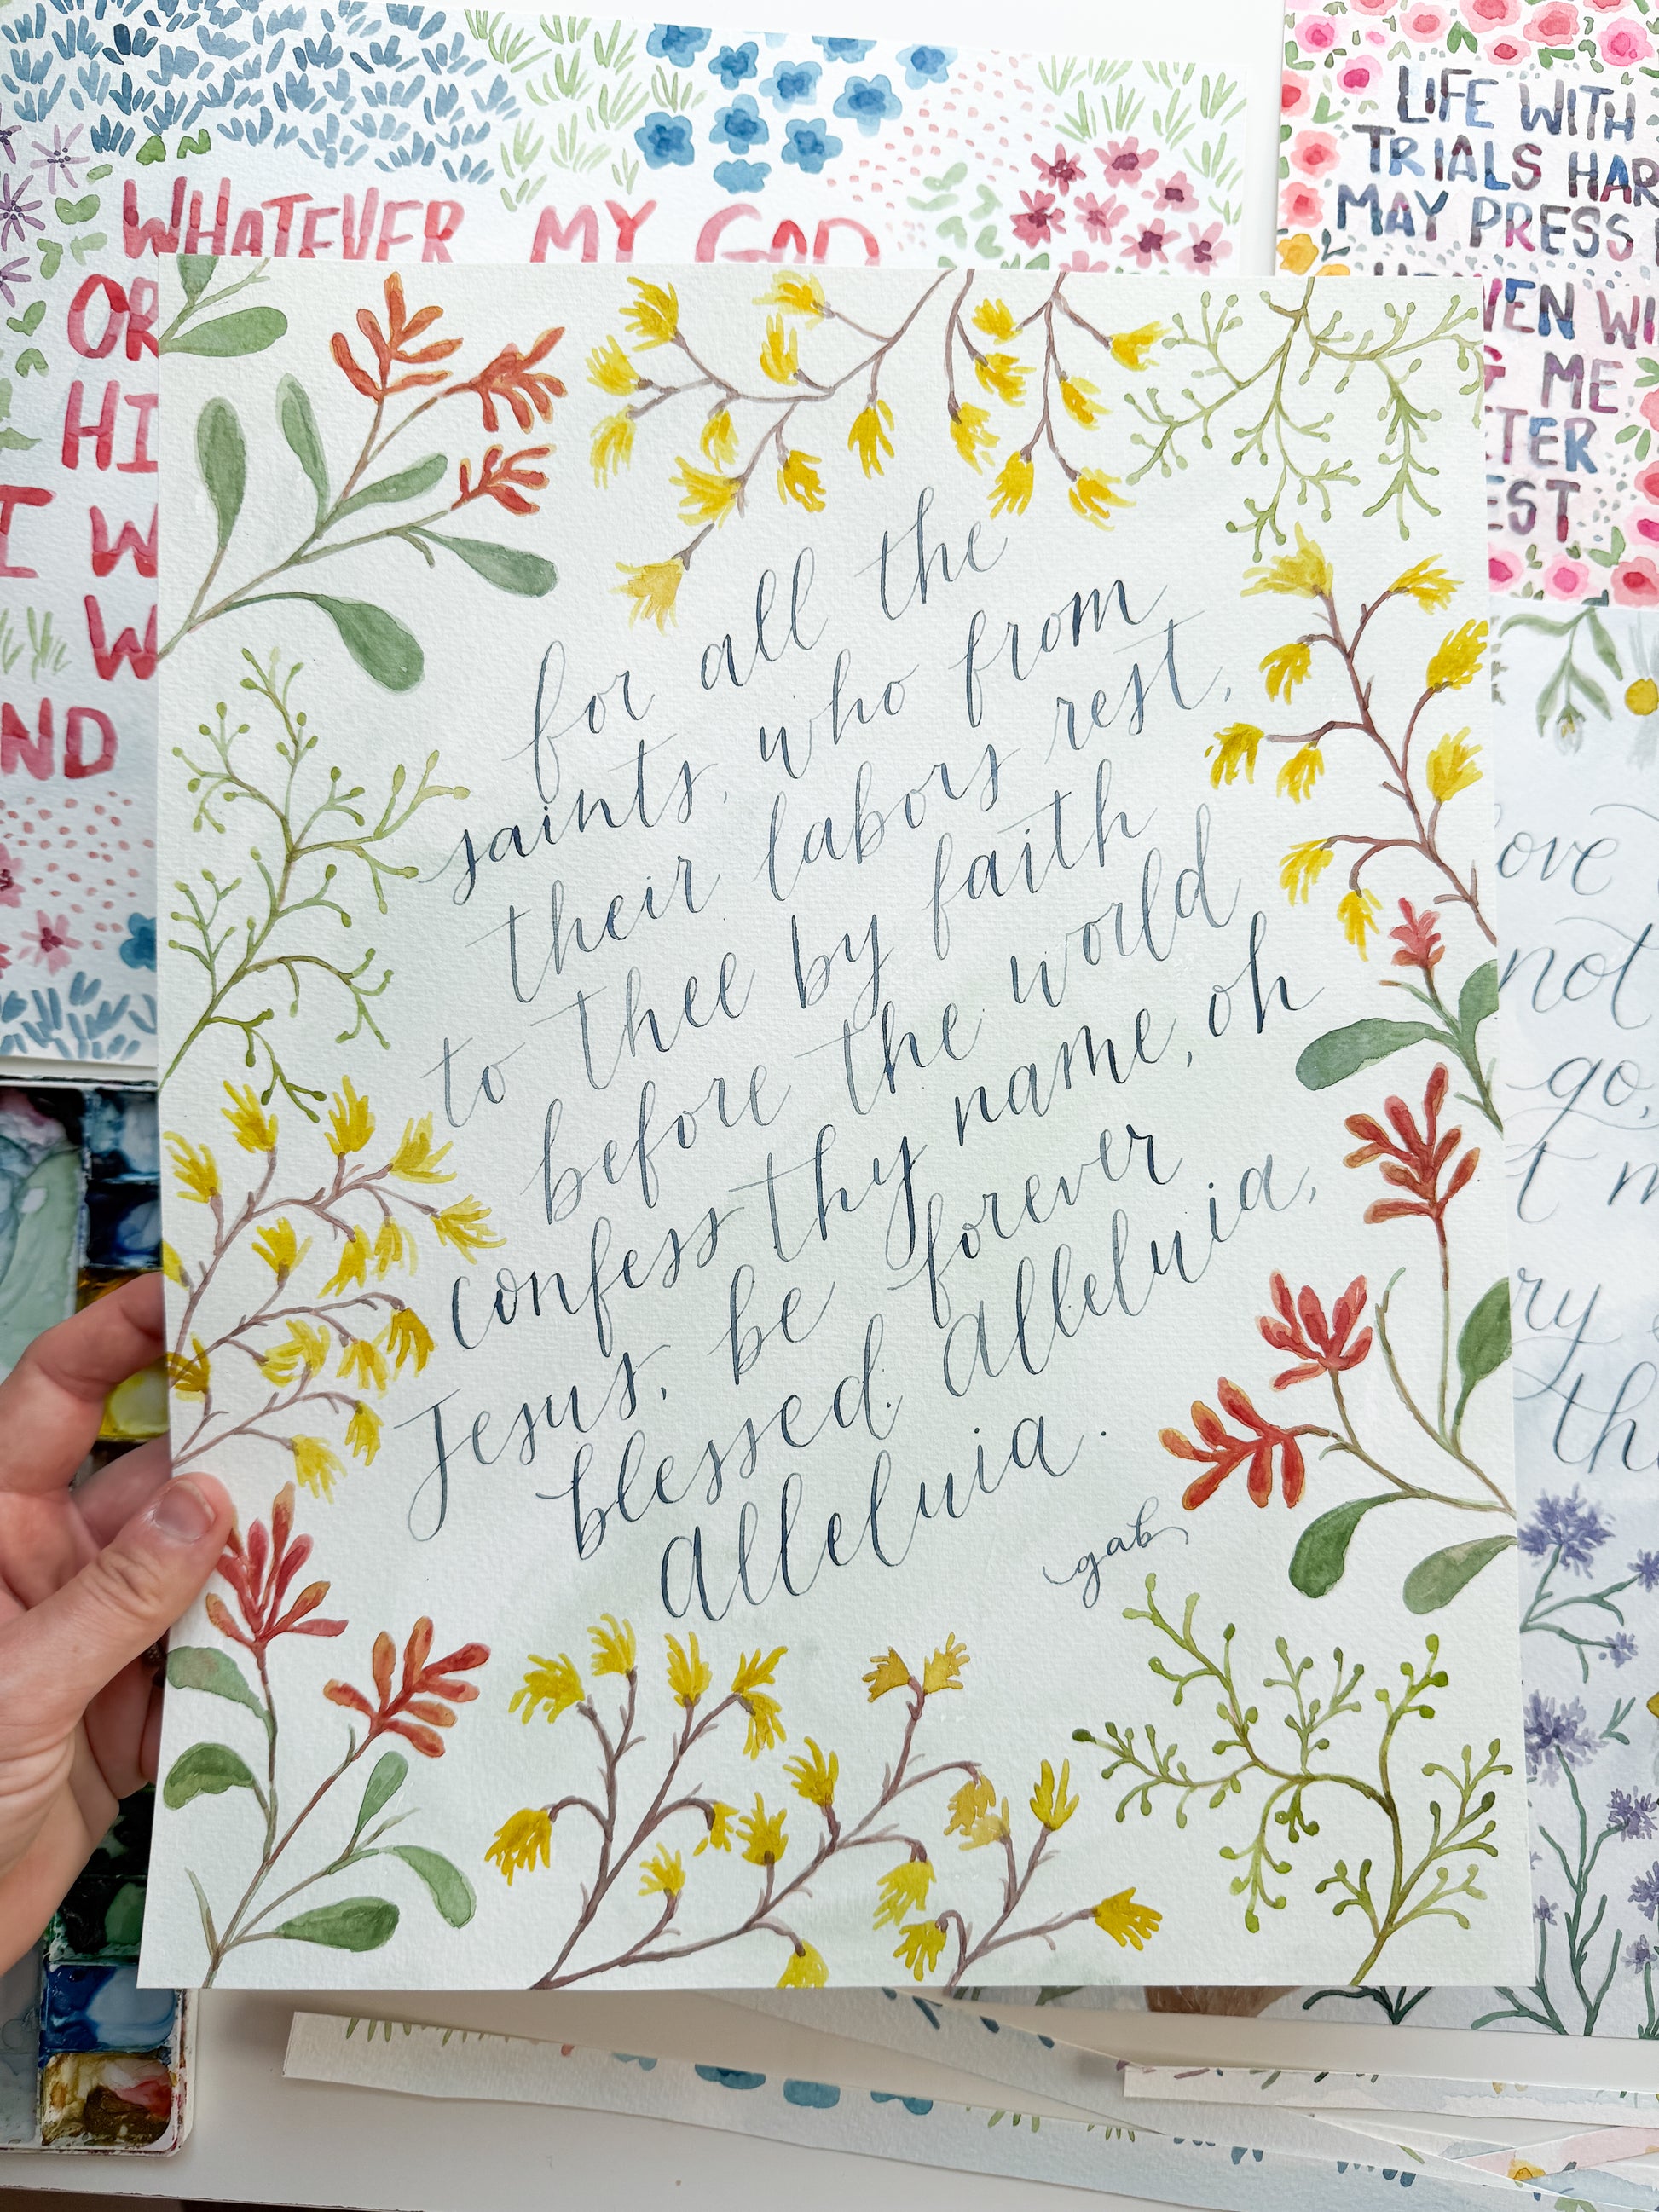 WHATEVER MY GOD
OR
HI
I W
W
ND
LIFE WITH
TRIALS HAR
MAY PRESS
VEN WI
ME
TER
EST
for all the
saints, who from
their labors rest,
to thee by faith
before the world
confess thy name, oh
Jesus, be forever
blessed. alleluia,
alleluia.
gab
ove
not
go,
t m
ry
th